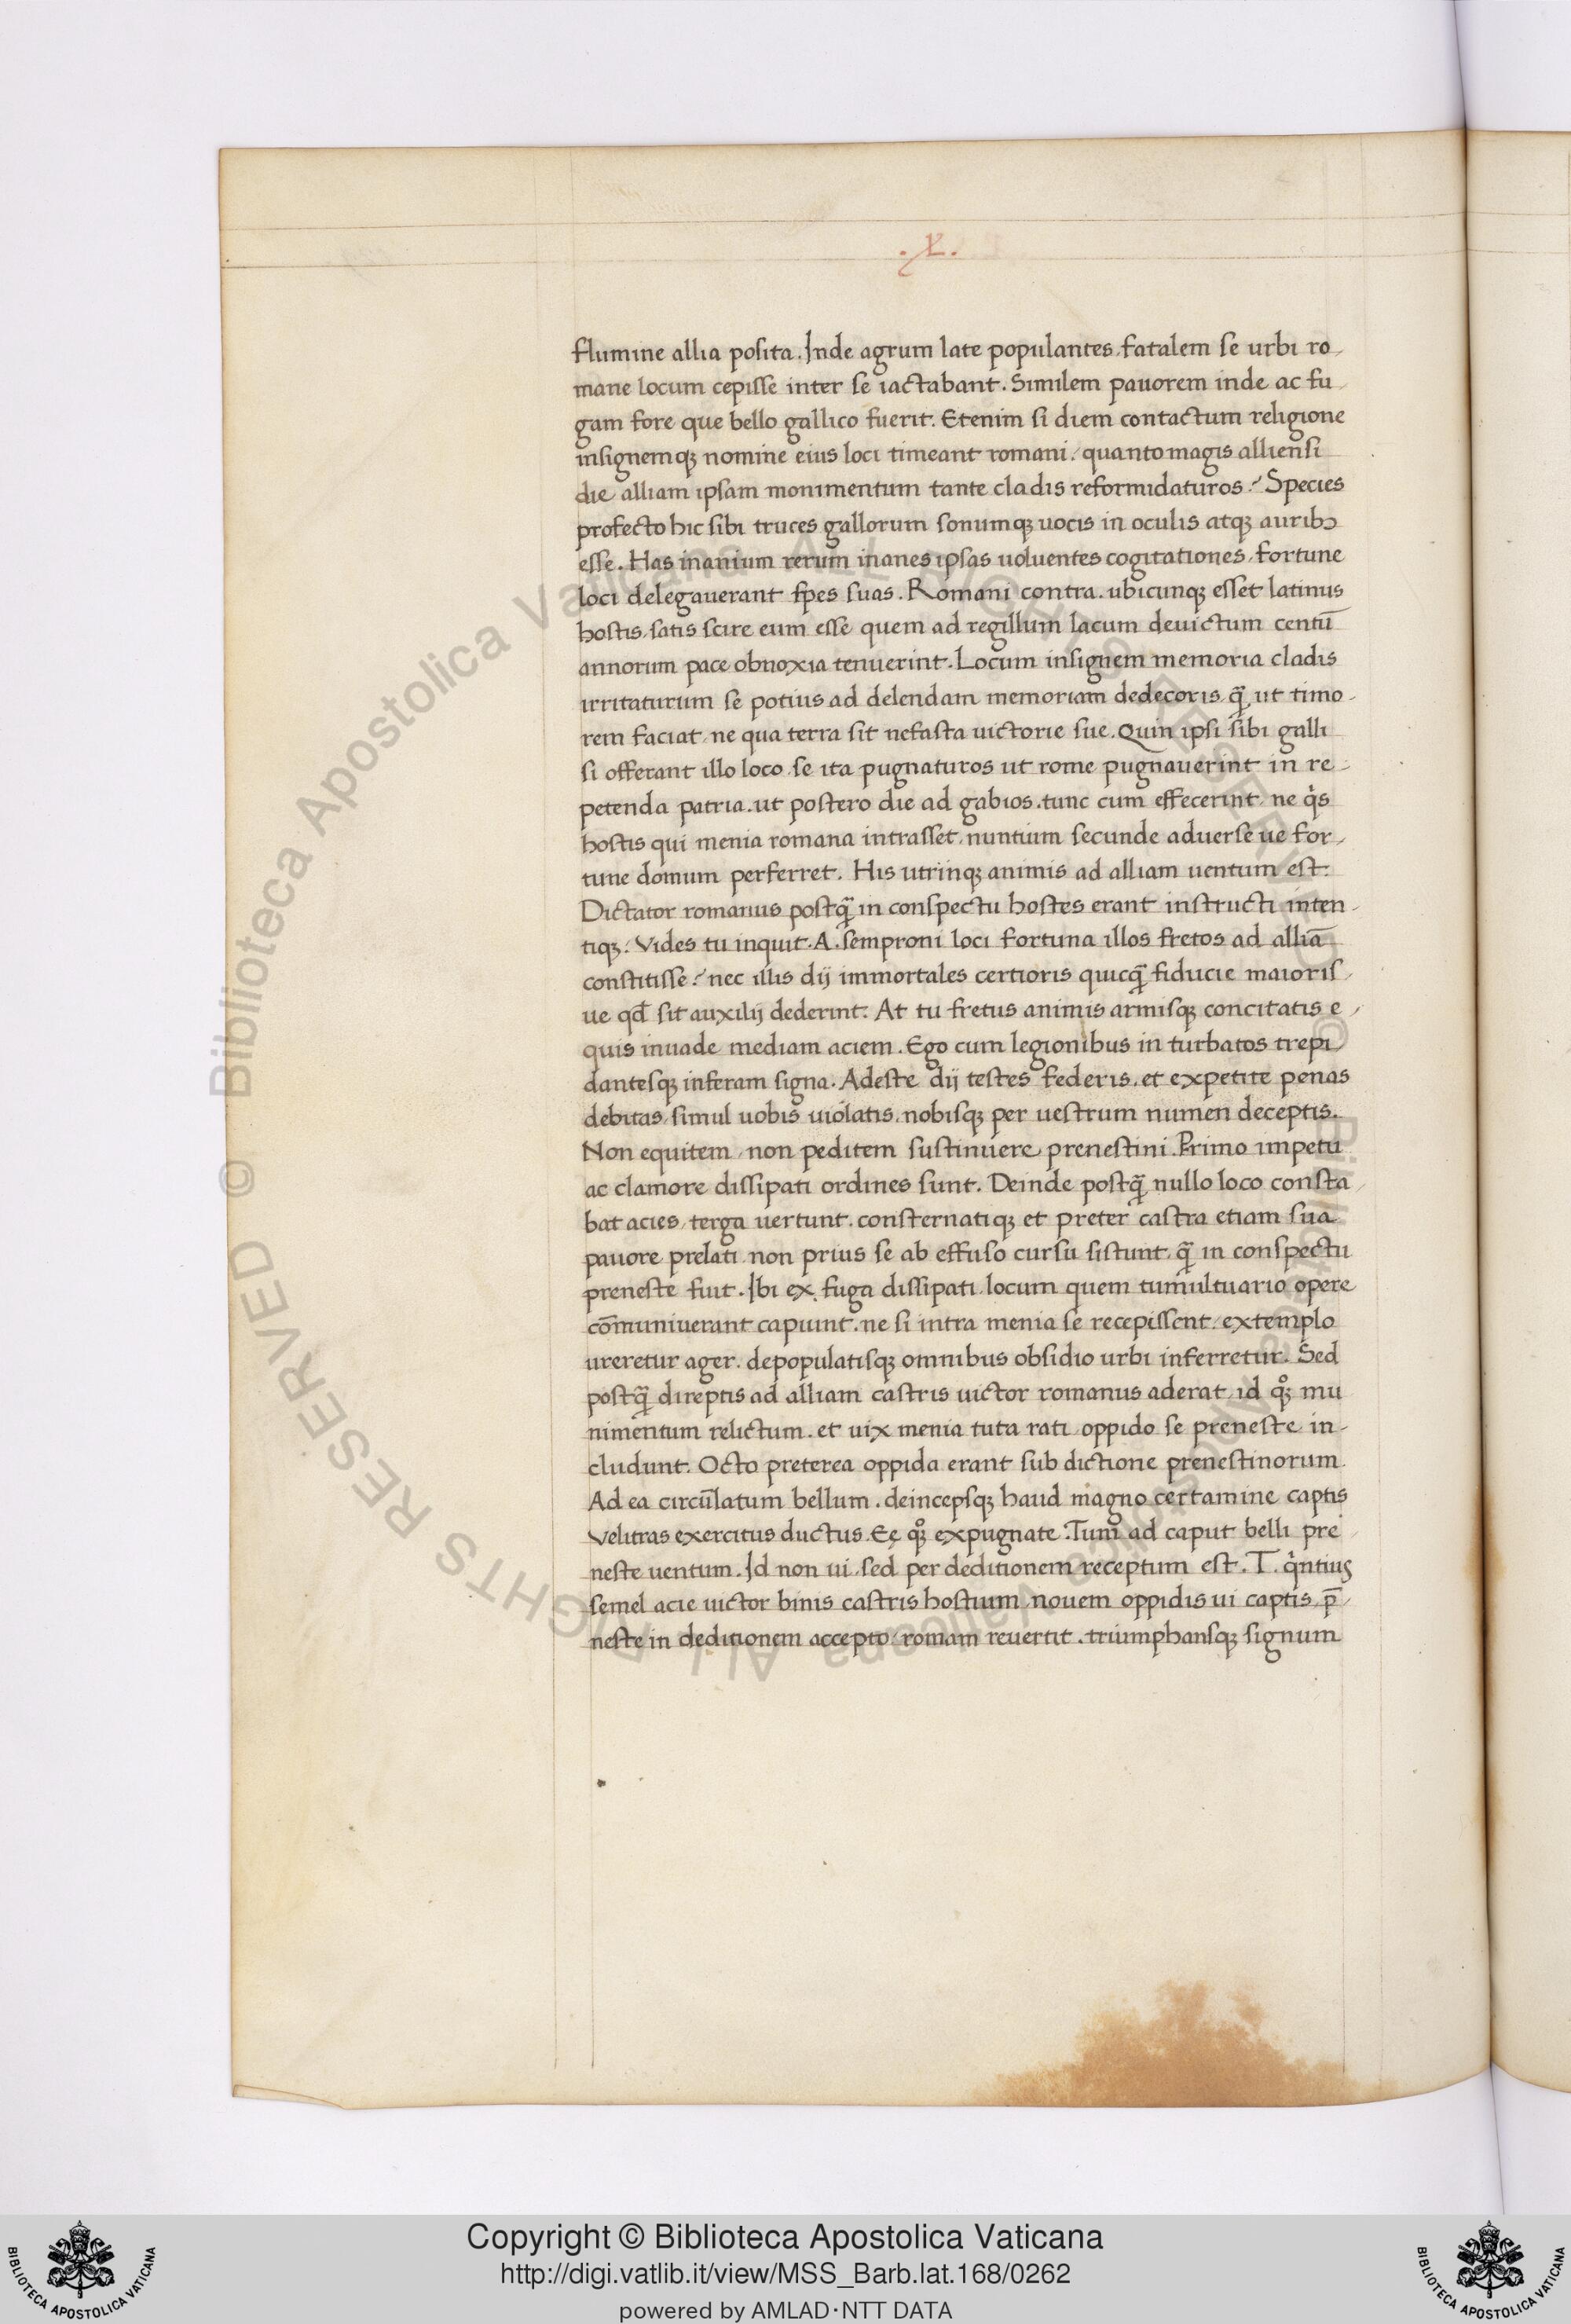 .X.
flumine allia posita. Inde agrum late populantes. fatalem se urbi ro-
mane locum cepisse inter se iactabant. Similem pauorem inde ac fu-
gam fore que bello gallico fuerit. Etenim si diem contactum religione
insignemqꝫ nomine eius loci timeant romani. quanto magis alliensi
die alliam ipsam monimentum tante cladis reformidaturos? Species
profecto hic sibi truces gallorum sonumqꝫ uocis in oculis atqꝫ auribꝯ
esse. Has inanium rerum inanes ipsas uoluentes cogitationes, fortune
loci delegauerant spes suas. Romani contra. ubicunqꝫ esset latinus
hostis, satis scire eum esse quem ad regillum lacum deuictum centū
annorum pace obnoxia tenuerint. Locum insignem memoria cladis
irritaturum se potius ad delendam memoriam dedecoris, q̄ ut timo-
rem faciat, ne qua terra sit nefasta uictorie sue. Quin ipsi sibi galli
si offerant illo loco, se ita pugnaturos ut rome pugnauerint in re-
petenda patria. ut postero die ad gabios. tunc cum effecerint, ne qͥs
hostis qui menia romana intrasset, nuntium secunde aduerse ue for-
tune domum perferret. His utrinqꝫ animis ad alliam uentum est.
Dictator romanus postq̄ in conspectu hostes erant instructi inten-
tiqꝫ: Vides tu inquit. A. semproni loci fortuna illos fretos ad alliā
constitisse? nec illis dij immortales certioris quicq̄ fiducie maioris-
ue qd̄ sit auxilij dederint. At tu fretus animis armisqꝫ concitatis e-
quis inuade mediam aciem. Ego cum legionibus in turbatos trepi-
dantesqꝫ inferam signa. Adeste dij testes federis. et expetite penas
debitas, simul uobis uiolatis, nobisqꝫ per uestrum numen deceptis.
Non equitem, non peditem sustinuere prenestini. Primo impetu
ac clamore dissipati ordines sunt. Deinde postq̄ nullo loco consta-
bat acies, terga uertunt. consternatiqꝫ et preter castra etiam sua
pauore prelati, non prius se ab effuso cursu sistunt, q̄ in conspectu
preneste fuit. Ibi ex fuga dissipati, locum quem tumultuario opere
cōmuniuerant capiunt. ne si intra menia se recepissent, extemplo
ureretur ager. depopulatisqꝫ omnibus obsidio urbi inferretur. Sed
postq̄ direptis ad alliam castris uictor romanus aderat, id qͦꝫ mu
nimentum relictum. et uix menia tuta rati, oppido se preneste in-
cludunt. Octo preterea oppida erant sub dictione prenestinorum.
Ad ea circūlatum bellum. deincepsqꝫ haud magno certamine captis
Velitras exercitus ductus. Eę qͦꝫ expugnate. Tum ad caput belli pre-
neste uentum. Id non ui, sed per deditionem receptum est. T. qͥntius
semel acie uictor binis castris hostium nouem oppidis ui captis, p̄-
neste in deditionem accepto, romam reuertit. triumphansqꝫ signum
© Biblioteca Apostolica Vaticana ALL RIGHTS RESERVED
© Biblioteca Apostolica Vaticana ALL RIGHTS RESERVED
Copyright © Biblioteca Apostolica Vaticana
http://digi.vatlib.it/view/MSS_Barb.lat.168/0262
powered by AMLAD·NTT DATA
BIBLIOTECA APOSTOLICA VATICANA
BIBLIOTECA APOSTOLICA VATICANA